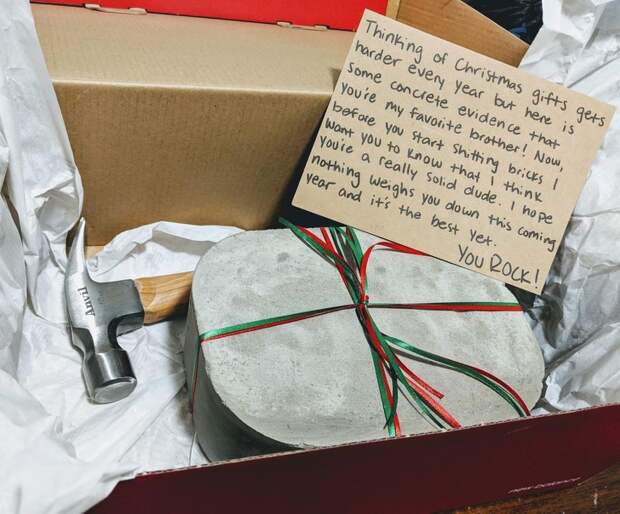 Thinking of Christmas gifts gets
harder every year but here is
some concrete evidence that
you're my favorite brother! Now,
before you start shitting bricks I
want you to know that I think
you're a really solid dude. I hope
nothing weighs you down this coming
year and it's the best yet.
YOU ROCK!
Anvil